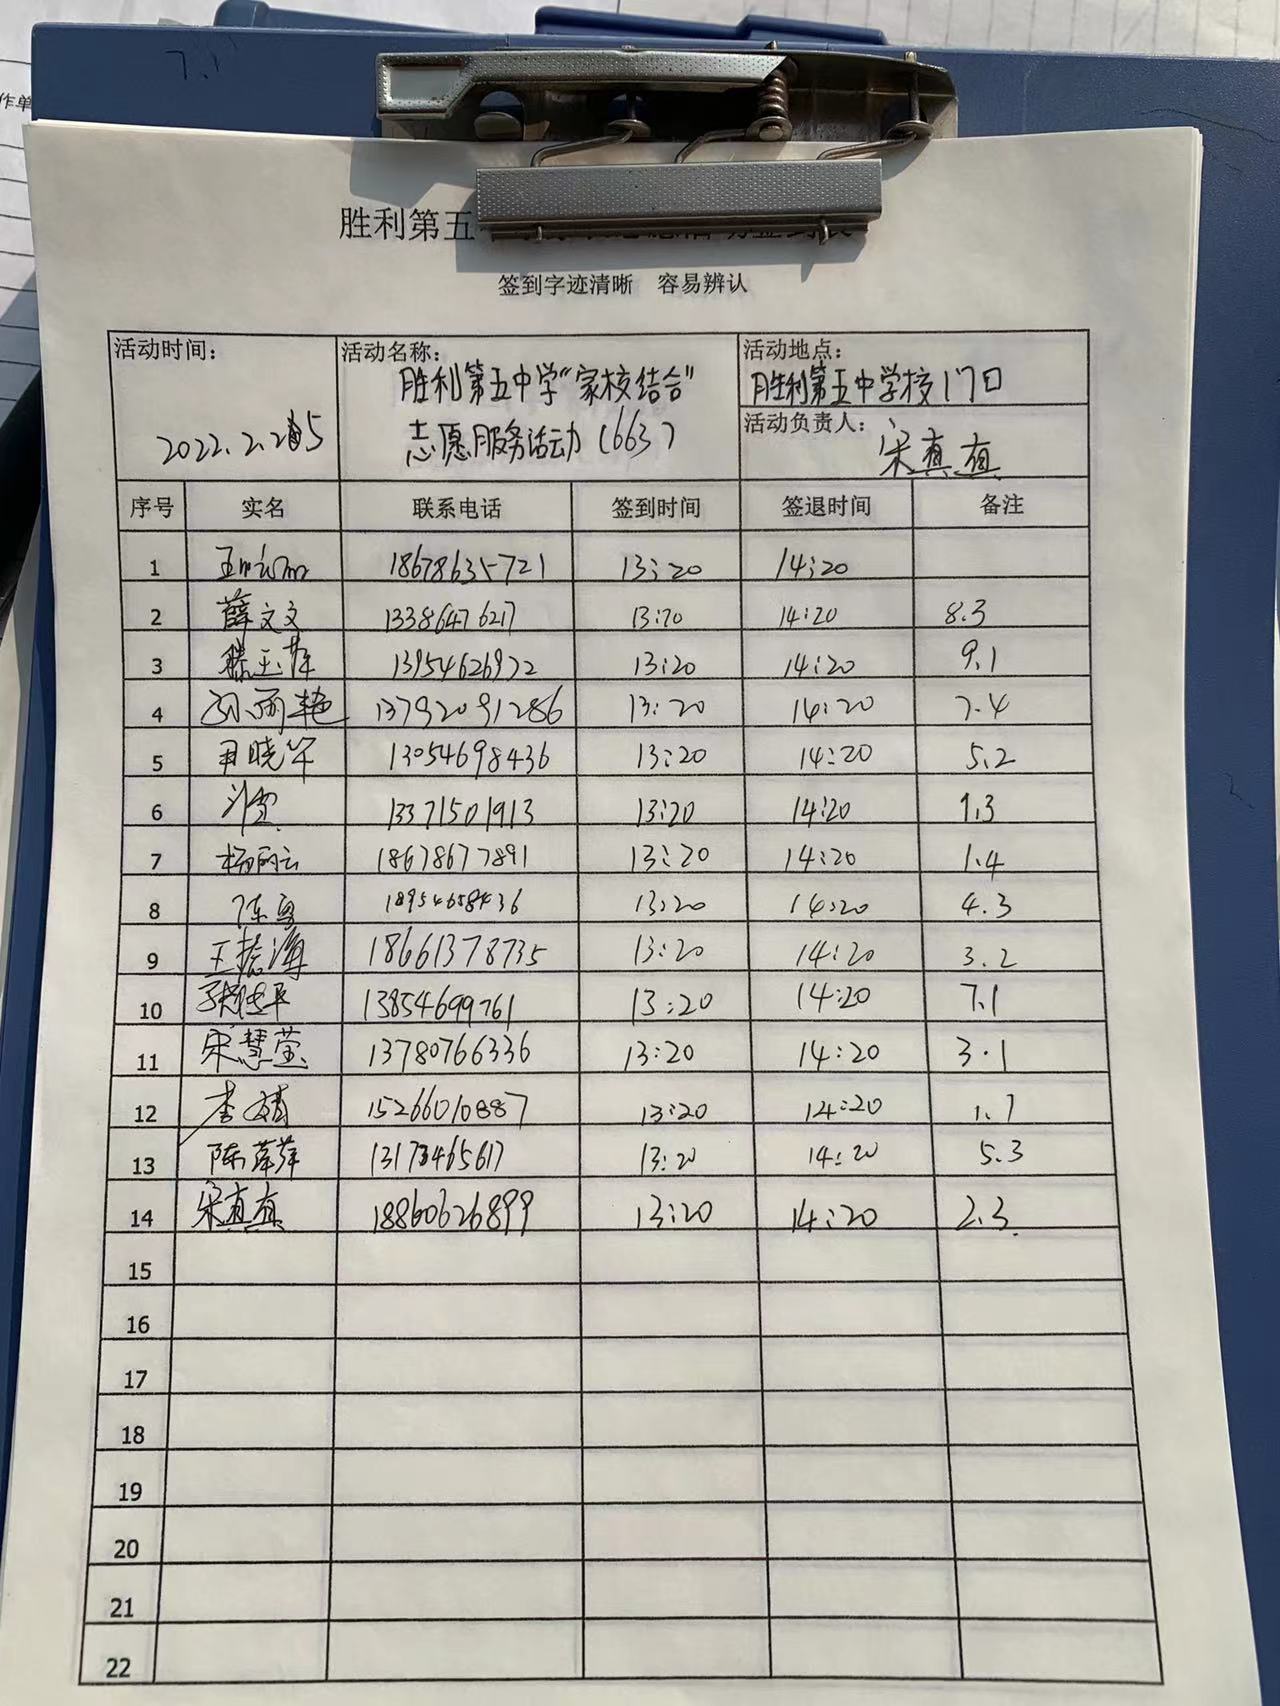 7.1
作单
胜利第五
签到字迹清晰 容易辨认
活动时间: 活动名称: 活动地点:
胜利第五中学“家校结合” 胜利第五中学校门口
2022.2.25 志愿服务活动(663) 活动负责人: 宋真真
序号 实名 联系电话 签到时间 签退时间 备注
1 18678635721 13:20 14:20
2 薛文文 13386476217 13:20 14:20 8.3
3 滕玉萍 13954626972 13:20 14:20 9.1
4 孙丽艳 13792091286 13:20 14:20 7.4
5 尹晓华 13054698436 13:20 14:20 5.2
6 13371501913 13:20 14:20 1.3
7 杨丽云 18678677891 13:20 14:20 1.4
8 18954658436 13:20 14:20 4.3
9 王振海 18661378735 13:20 14:20 3.2
10 13854699761 13:20 14:20 7.1
11 宋慧莹 13780766336 13:20 14:20 3.1
12 李婧 15266010887 13:20 14:20 1.7
13 陈萍萍 13173465617 13:20 14:20 5.3
14 宋真真 18860626899 13:20 14:20 2.3
15
16
17
18
19
20
21
22